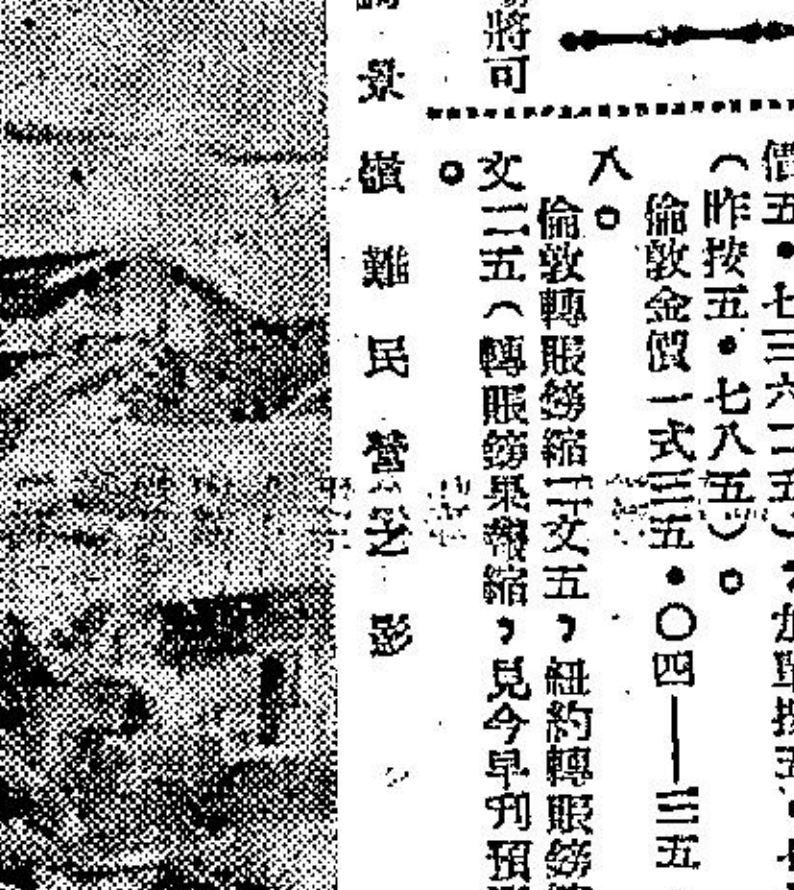 將可
價五・七三六二五），加單按五
（昨按五・七八五）。
倫敦金價一式三五・〇四——三五
八。
倫敦轉賬鎊縮二文五，紐約轉賬鎊
文二五（轉賬鎊果報縮，見今早刊預
。
景嶺難民營之影